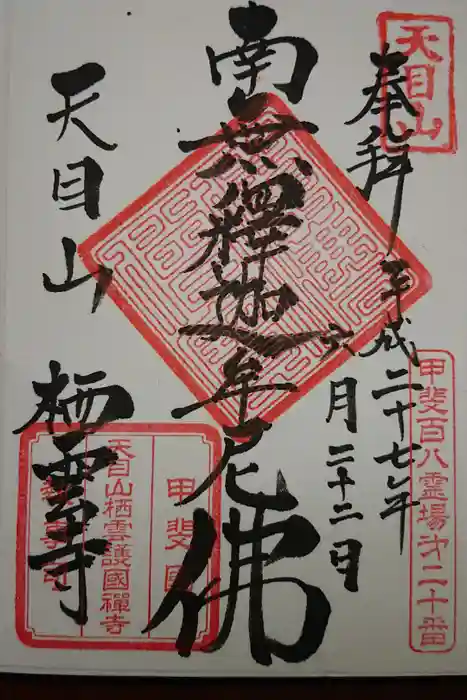 天目山
奉拝
平成二十七年
六月二十二日
甲斐百八霊場才二十番
南無釋迦牟尼佛
天目山
栖雲寺
甲斐國
天目山栖雲護國禪寺